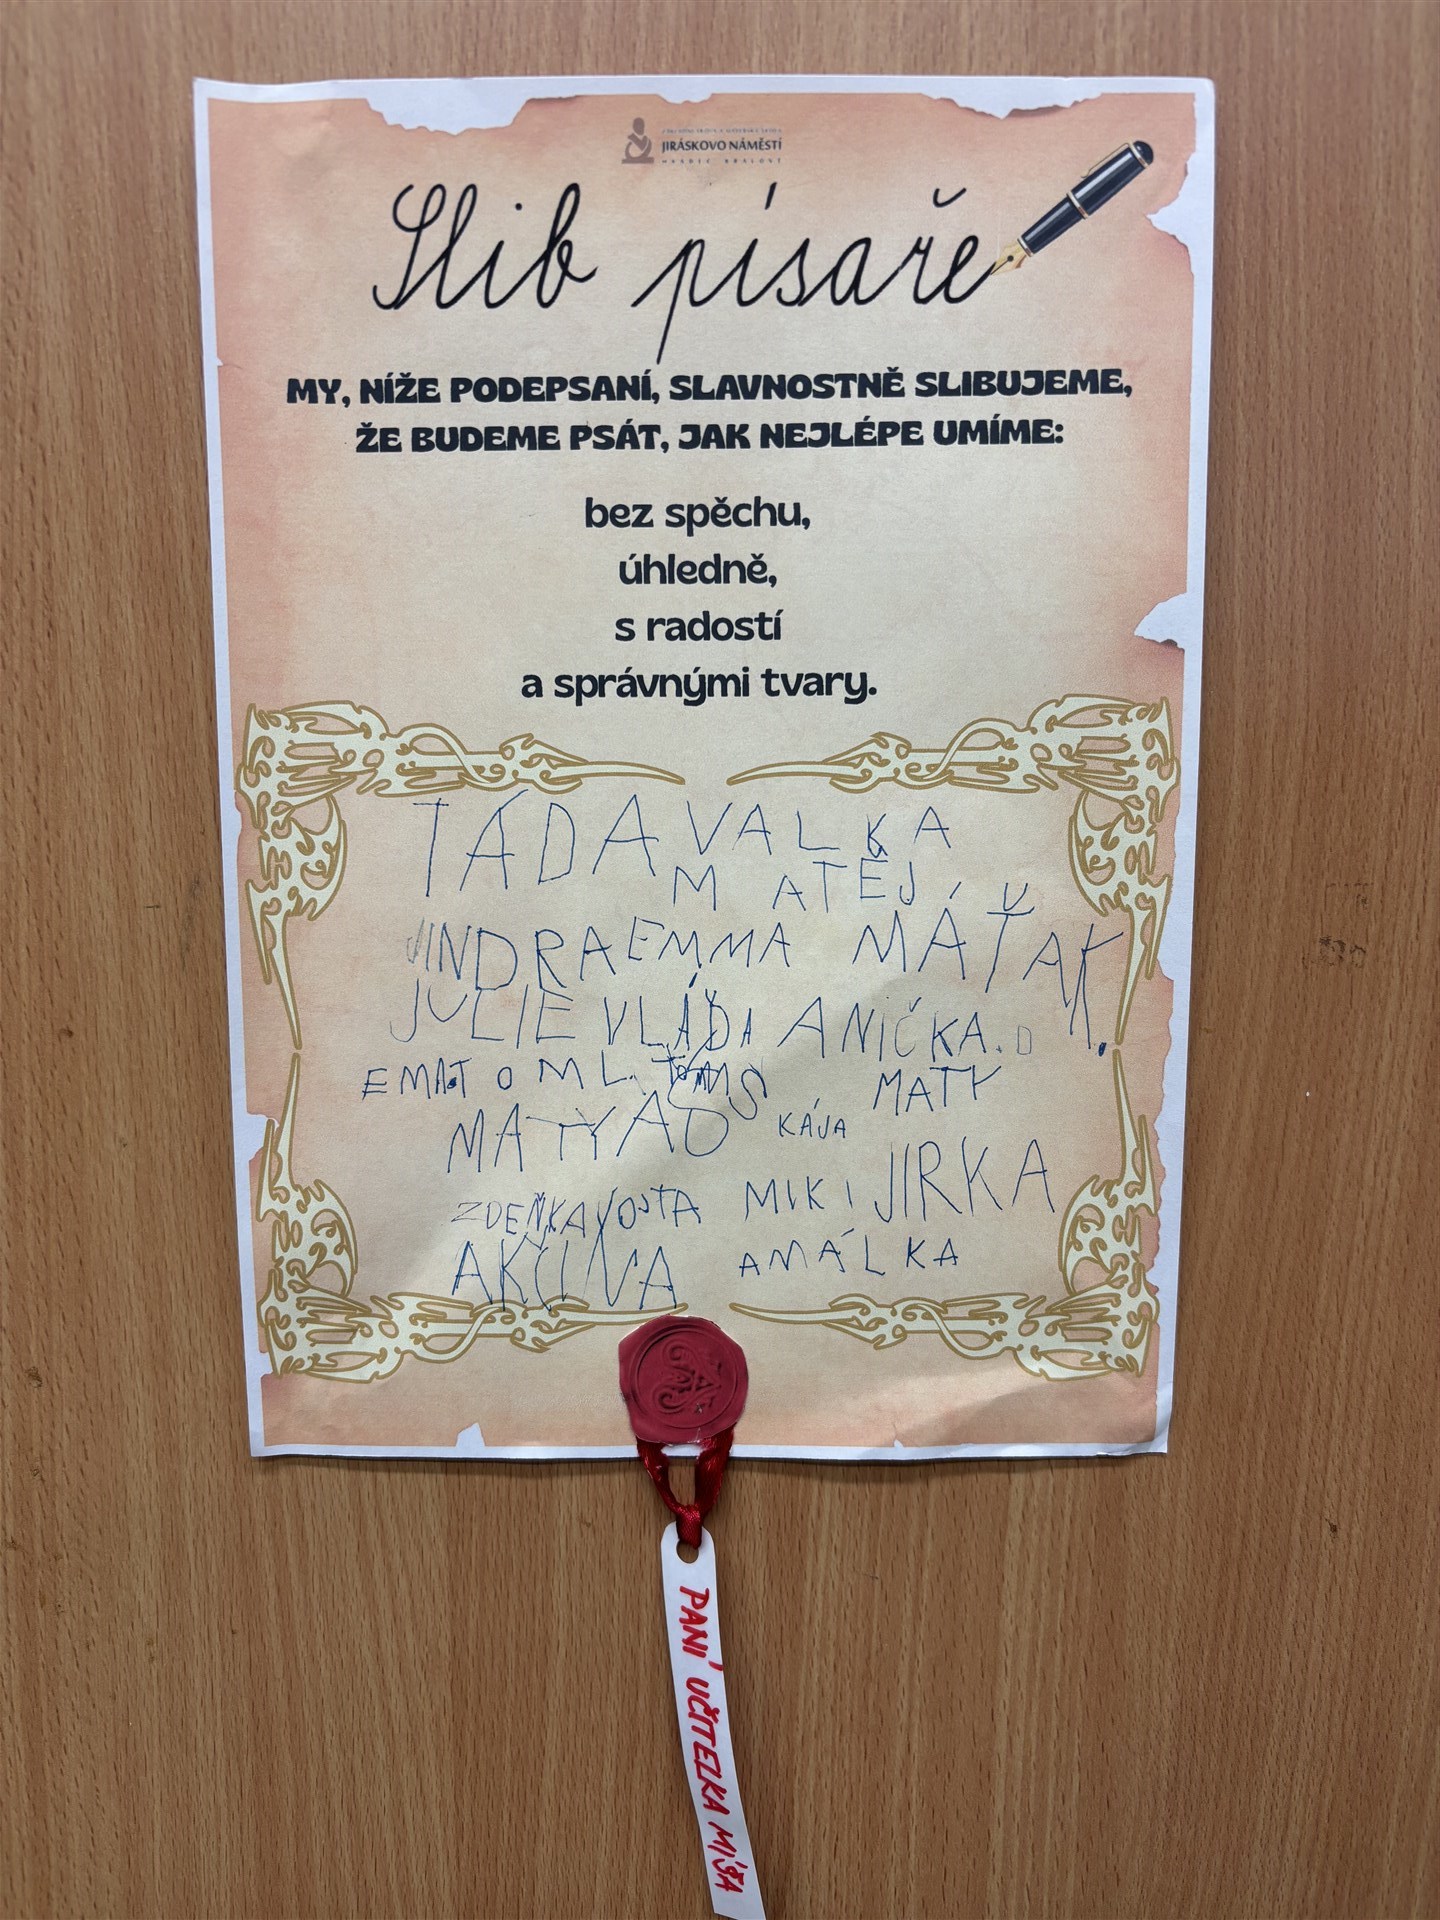 JIRÁSKOVO NÁMĚSTÍ
HRADEC KRÁLOVÉ
Slib písaře
MY, NÍŽE PODEPSANÍ, SLAVNOSTNĚ SLIBUJEME,
ŽE BUDEME PSÁT, JAK NEJLÉPE UMÍME:
bez spěchu,
úhledně,
s radostí
a správnými tvary.
TÁDA VALKA
MATĚJ
JINDRA EMMA MÁŤAK.
JULIE VLÁĎA ANIČKA. D
EMA TOM L. MATY
MATYÁS KÁJA
ZDEŇKA VOJTA MIKI JIRKA
AMÁLKA
PANÍ UČITELKA MIŠA